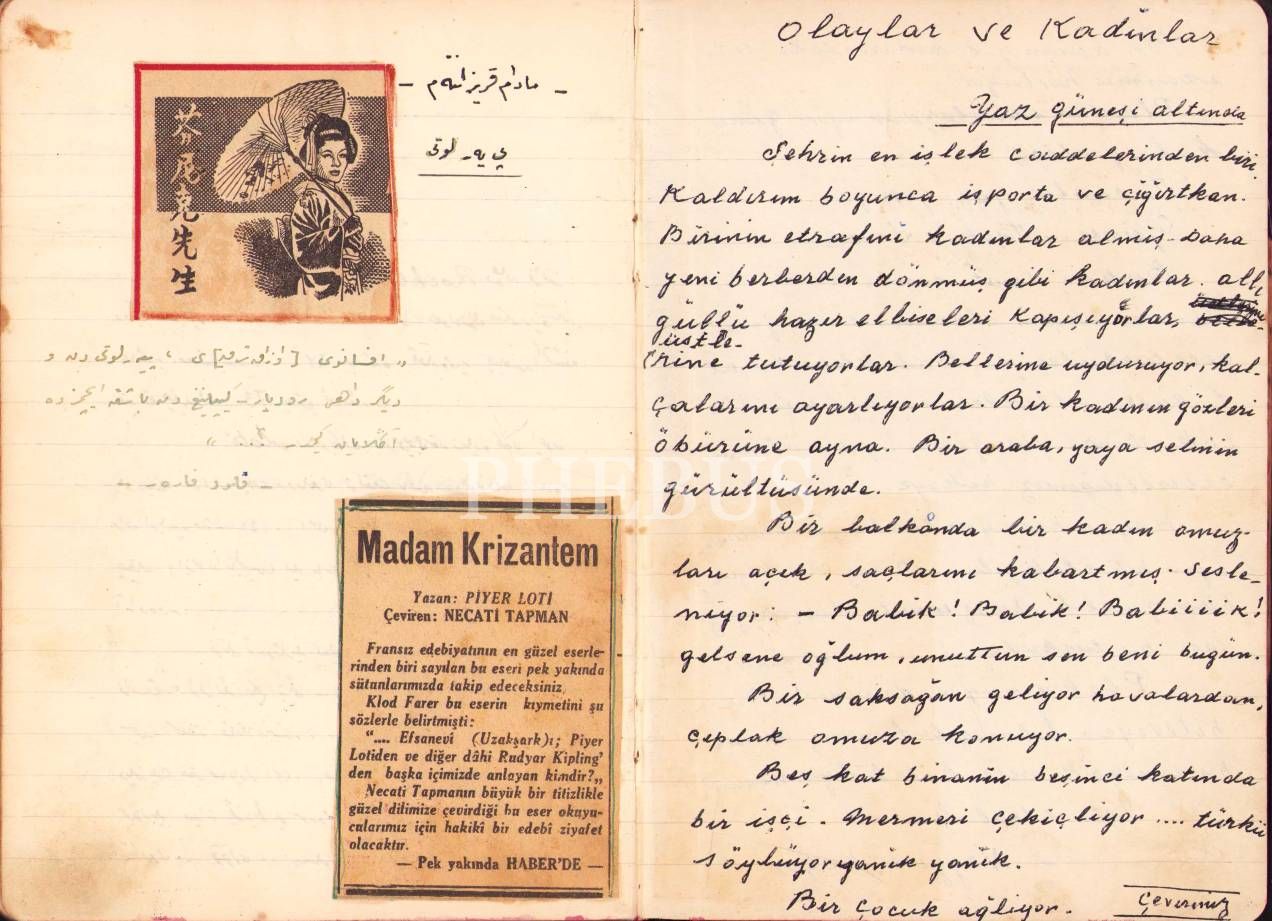 ـ مادام قريزانتم ـ
پي يه ر لوتى
„ افسانوى [اوزاق شرق]ى ، پيه ر لوتى دن و
ديگر داهى روديار كيپلينغ دن باشقه ايچمزده
آڭلايان كيمدر ؟ „
ـ قلود فاره ر ـ
PHEBUS
Madam Krizantem
Yazan: PİYER LOTİ
Çeviren: NECATİ TAPMAN
Fransız edebiyatının en güzel eserle-
rinden biri sayılan bu eseri pek yakında
sütunlarımızda takip edeceksiniz.
Klod Farer bu eserin kıymetini şu
sözlerle belirtmişti:
“.... Efsanevî (Uzakşark)ı; Piyer
Lotiden ve diğer dâhi Rudyar Kipling'
den başka içimizde anlayan kimdir?„
Necati Tapmanın büyük bir titizlikle
güzel dilimize çevirdiği bu eser okuyu-
cularımız için hakikî bir edebî ziyafet
olacaktır.
— Pek yakında HABER'DE —
Olaylar ve Kadınlar
Yaz güneşi altında
Şehrin en işlek caddelerinden biri,
Kaldırım boyunca işporta ve çığırtkan.
Birinin etrafını kadınlar almış. Daha
yeni berberden dönmüş gibi kadınlar. allı
güllü hazır elbiseleri kapışıyorlar,
üstle-
rine tutuyorlar. Bellerine uyduruyor, kal-
çalarını ayarlıyorlar. Bir kadının gözleri
öbürüne ayna. Bir araba, yaya selinin
gürültüsünde.
Bir balkonda bir kadın omuz-
ları açık, saçlarını kabartmış. Sesle-
niyor: — Babik! Babik! Babiiiik!
gelsene oğlum, unuttun sen beni bugün.
Bir saksağan geliyor havalardan,
çıplak omuza konuyor.
Beş kat binanın beşinci katında
bir işçi. Mermeri çekiçliyor .... türkü
söylüyor yanık yanık.
Bir çocuk ağlıyor.
Çeviriniz